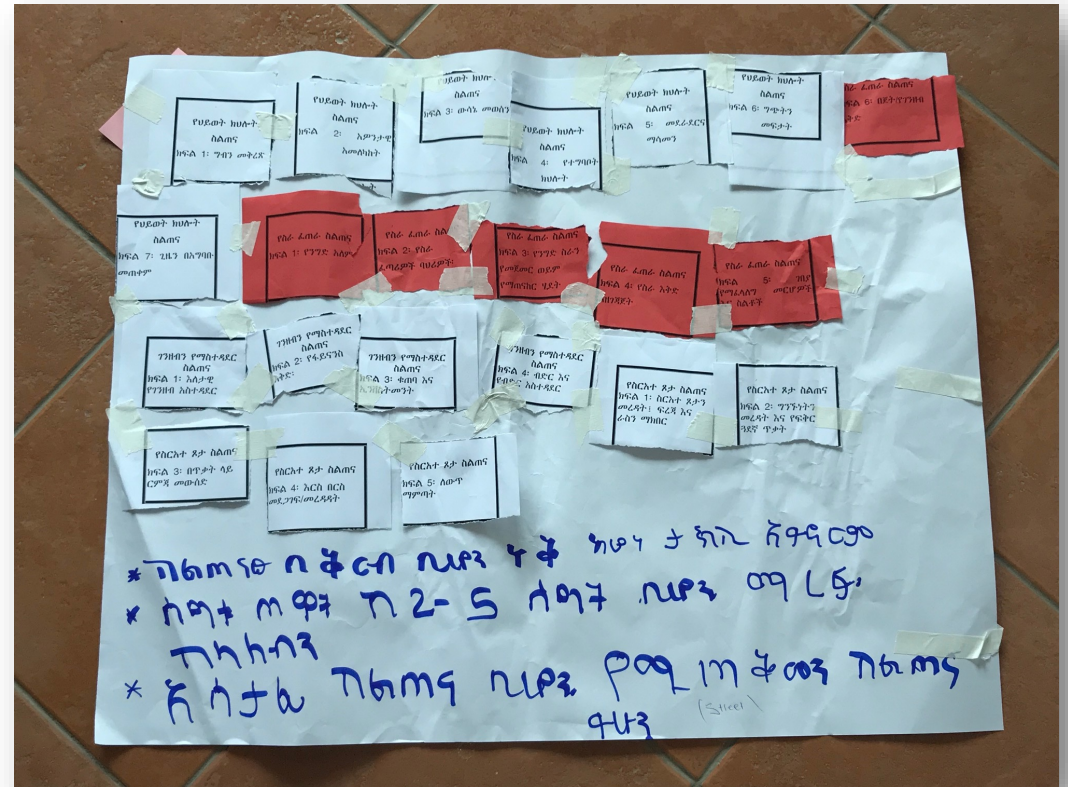 የህይወት ክህሎት
ስልጠና
ክፍል 1፡ ግብን መቅረጽ
የህይወት ክህሎት
ስልጠና
ክፍል 2፡ አዎንታዊ
አመለካከት
የህይወት ክህሎት
ስልጠና
ክፍል 3፡ ውሳኔ መወሰን
የህይወት ክህሎት
ስልጠና
ክፍል 4፡ የተግባቦት
ክህሎት
የህይወት ክህሎት
ስልጠና
ክፍል 5፡ መደራደርና
ማሳመን
የህይወት ክህሎት
ስልጠና
ክፍል 6፡ ግጭትን
መፍታት
ስራ ፈጠራ ስልጠና
ክፍል 6፡
የህይወት ክህሎት
ስልጠና
ክፍል 7፡ ጊዜን በአግባቡ
መጠቀም
የስራ ፈጠራ ስልጠና
ክፍል 1፡ የንግድ አለም
የስራ ፈጠራ ስልጠና
ክፍል 2፡ የስራ
ፈጣሪዎች ባህሪዎች
የስራ ፈጠራ ስልጠና
ክፍል 3፡ የንግድ ስራን
የመጀመር ወይም
የማጠናከር ሂደት
የስራ ፈጠራ ስልጠና
ክፍል 4፡ የስራ እቅድ
ማዘጋጀት
የስራ ፈጠራ ስልጠና
ክፍል 5፡ ገበያ
የማፈላለግ መርሆዎች
እና ስልቶች
ገንዘብን የማስተዳደር
ስልጠና
ክፍል 1፡ እለታዊ
የገንዘብ አስተዳደር
ገንዘብን የማስተዳደር
ስልጠና
ክፍል 2፡ የፋይናንስ
እቅድ
ገንዘብን የማስተዳደር
ስልጠና
ክፍል 3፡ ቁጠባ እና
ኢንቨስትመንት
ገንዘብን የማስተዳደር
ስልጠና
ክፍል 4፡ ብድር እና
የብድር አስተዳደር
የስርአተ ጾታ ስልጠና
ክፍል 1፡ ስርአተ ጾታን
መረዳት፣ ፍረጃ እና
ራስን ማክበር
የስርአተ ጾታ ስልጠና
ክፍል 2፡ ግንኙነትን
መረዳት እና የፍቅር
ጓደኛ ጥቃት
የስርአተ ጾታ ስልጠና
ክፍል 3፡ በጥቃት ላይ
ርምጃ መውሰድ
የስርአተ ጾታ ስልጠና
ክፍል 4፡ እርስ በርስ
መደጋገፍ/መረዳዳት
የስርአተ ጾታ ስልጠና
ክፍል 5፡ ለውጥ
ማምጣት
* ስልጠናው በቅርብ ቢሆን
* ሰዓቱ ጠዋት ከ 2-5 ሰዓት ቢሆን
* ስልጠና ቢሆን የሚጠቅመን ስልጠና
ቢሆን